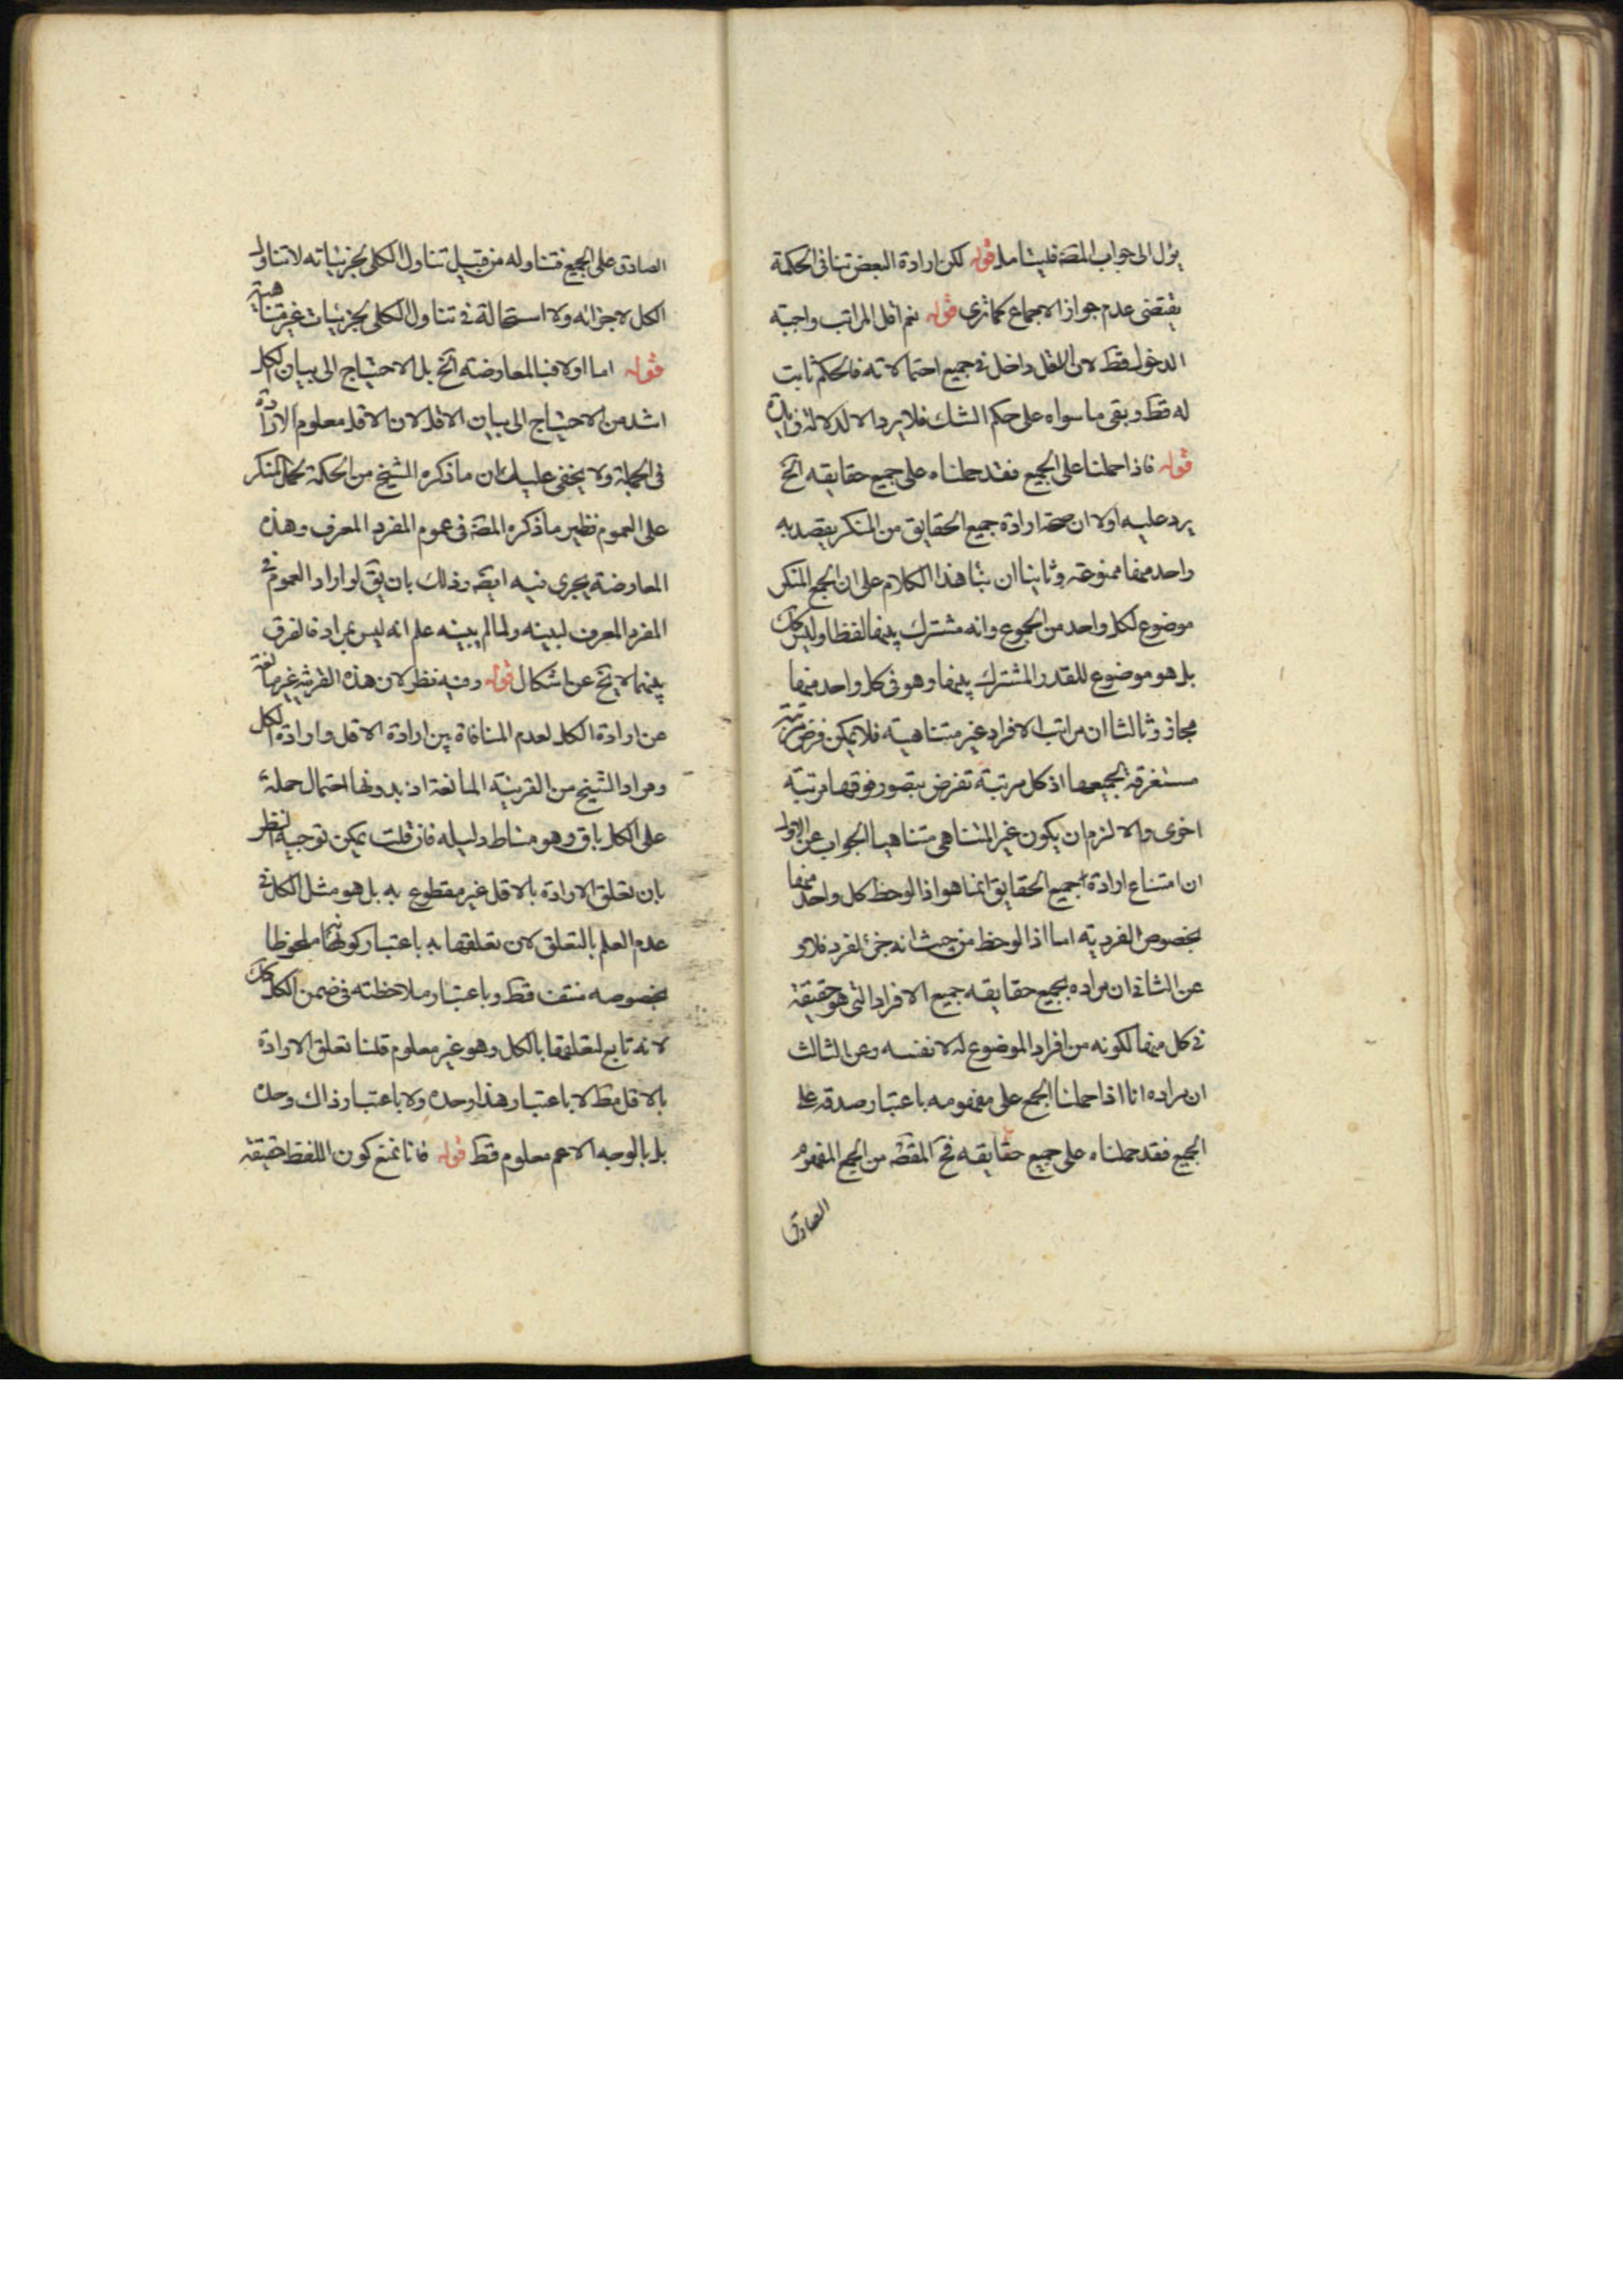 يؤل الى جواب المصَ فليتامل قوله لكن ارادة البعض تنافى الحكمة
يقتضى عدم جواز الاجماع كما ترى قوله نعم اقل المراتب واجبة
الدخول قط لان الاقل داخل فى جميع احتمالاته فالحكم ثابت
له قط وبقى ما سواه على حكم الشك فلا يرد الا لدلالة زايدة
قوله فاذا حملنا على الجميع فقد حملناه على جميع حقايقه الخ
يرد عليه اولا ان صحة ارادة جميع الحقايق من المنكر بقصد به
واحد منها ممنوعة وثانيا ان بناء هذا الكلام على ان الجمع المنكر
موضوع لكل واحد من الجموع وانه مشترك بينها لفظا وليس كك
بل هو موضوع للقدر المشترك بينها وهو فى كل واحد منها
مجاز وثالثا ان مراتب الافراد غير متناهية فلا يمكن فرض مرتبة
مستغرقة لجميعها اذ كل مرتبة تفرض يتصور فوقها مرتبة
اخرى والا لزم ان يكون غير المتناهى متناهيا الجواب عن الاول
ان امتناع ارادة جميع الحقايق انما هو اذا لوحظ كل واحد منها
بخصوص الفردية اما اذا لوحظ من حيث انه جزئ لفرد فلا و
عن الثانى ان مراده بجميع حقايقه جميع الافراد التى هو حقيقة
فى كل منها لكونه من افراد الموضوع له لا نفسه وعن الثالث
ان مراده انا اذا حملنا الجمع على مفهومه باعتبار صدقه على
الجميع فقد حملناه على جميع حقايقه فح المقصَ من الجمع المفهوم
الصادق
الصادق على الجميع فتناوله من قبيل تناول الكلى لجزئياته لا تناول
الكل لاجزائه ولا استحالة فى تناول الكلى لجزئيات غير متناهية
قوله اما اولا فبالمعارضة الخ بل الاحتياج الى بيان الكل
اشد من الاحتياج الى بيان الاقل لان الاقل معلوم الارادة
فى الجملة ولا يخفى عليك ان ما ذكره الشيخ من الحكمة لحمل المنكر
على العموم نظير ما ذكره المصَ فى عموم المفرد المعرف وهذه
المعارضة يجرى فيه ايضَ وذلك بان يقَ لو اراد العموم فى
المفرد المعرف لبينه ولما لم يبينه علم انه ليس بمراد فالفرق
بينهما لا يخ عن اشكال قوله وفيه نظر لان هذه القرينة غير مانعة
عن ارادة الكل لعدم المنافاة بين ارادة الاقل وارادة الكل
ومراد الشيخ من القرينة المانعة اذ بدونها احتمال حمله
على الكل باق وهو مناط دليله فان قلت يمكن توجيه النظر
بان تعلق الارادة بالاقل غير مقطوع به بل هو مثل الكل فى
عدم العلم بالتعلق لان تعلقها به باعتبار كونه ملحوظا
بخصوصه منتف قط وباعتبار ملاحظته فى ضمن الكل كك
لانه تابع لتعلقها بالكل وهو غير معلوم قلنا تعلق الارادة
بالاقل مط لا باعتبار هذا وحده ولا باعتبار ذاك وحده
بل بالوجه الاعم معلوم قط قوله فانا نمنع كون اللفظ حقيقة